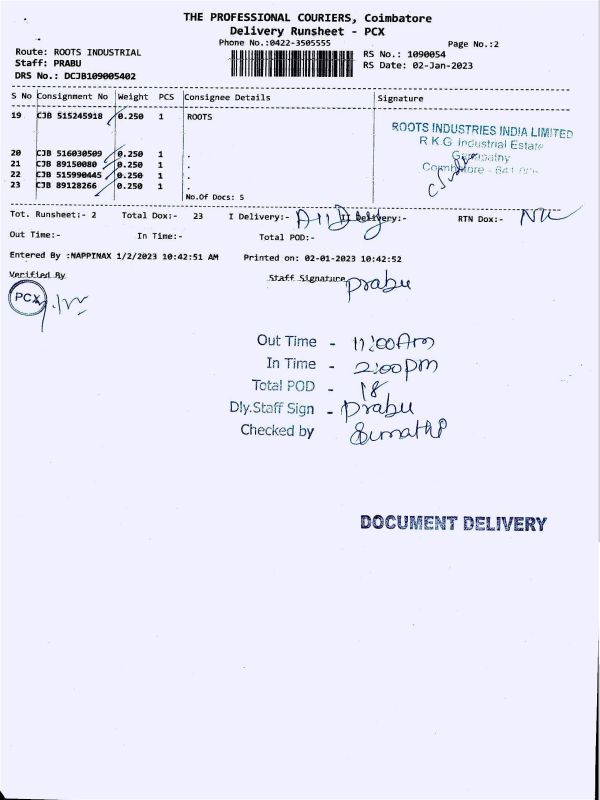 THE PROFESSIONAL COURIERS, Coimbatore
Delivery Runsheet - PCX
Phone No.:0422-3505555
Page No.:2
Route: ROOTS INDUSTRIAL
RS No.: 1090054
Staff: PRABU
RS Date: 02-Jan-2023
DRS No.: DCJB109005402
S No Consignment No Weight PCS Consignee Details Signature
19 CJB 515245918 0.250 1 ROOTS
ROOTS INDUSTRIES INDIA LIMITED
R.K.G. Industrial Estate
Ganapathy
Coimbatore - 641
20 CJB 516030509 0.250 1 .
21 CJB 89150080 0.250 1 .
22 CJB 515990445 0.250 1 .
23 CJB 89128266 0.250 1 .
No.Of Docs: 5
Tot. Runsheet:- 2 Total Dox:- 23 I Delivery:- All Dely II Delivery:- RTN Dox:- Nil
Out Time:- In Time:- Total POD:-
Entered By :NAPPINAX 1/2/2023 10:42:51 AM Printed on: 02-01-2023 10:42:52
Verified By Staff Signature Prabu
PCX
Out Time - 11:00Am
In Time - 2:00pm
Total POD - 18
Dly.Staff Sign - Prabu
Checked by Sumathi
DOCUMENT DELIVERY